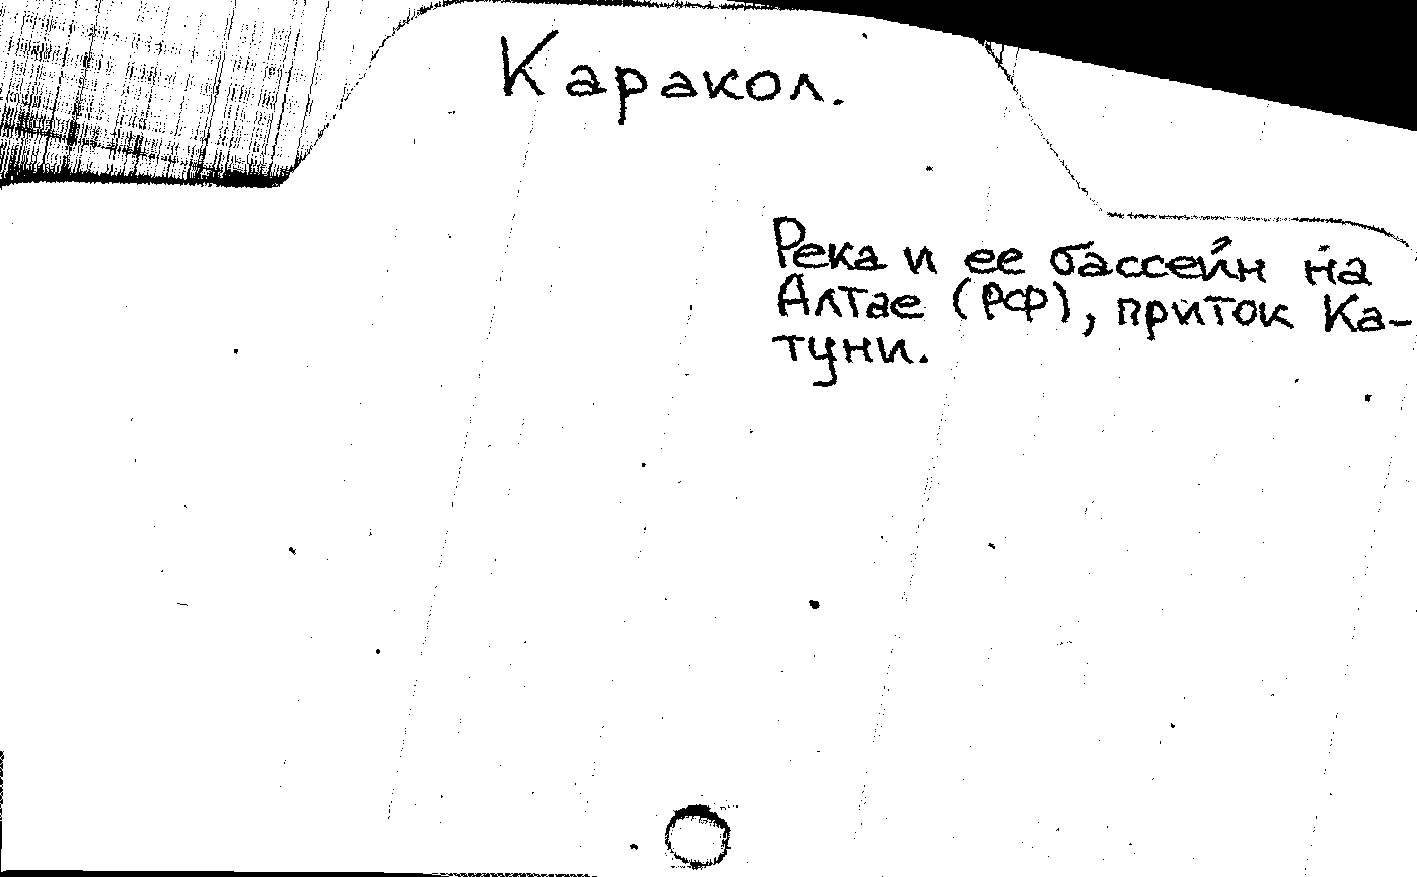 Каракол.
Река и ее бассейн на
Алтае (РФ), приток Ка-
туни.